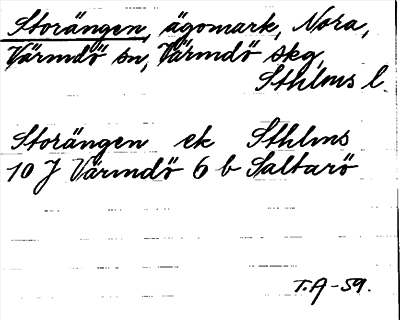 Storängen, ägomark, Nora,
Värmdö sn, Värmdö skg,
Sthlms l.
Storängen ek Sthlms
10 J Värmdö 6 b Saltarö
T.A-59.